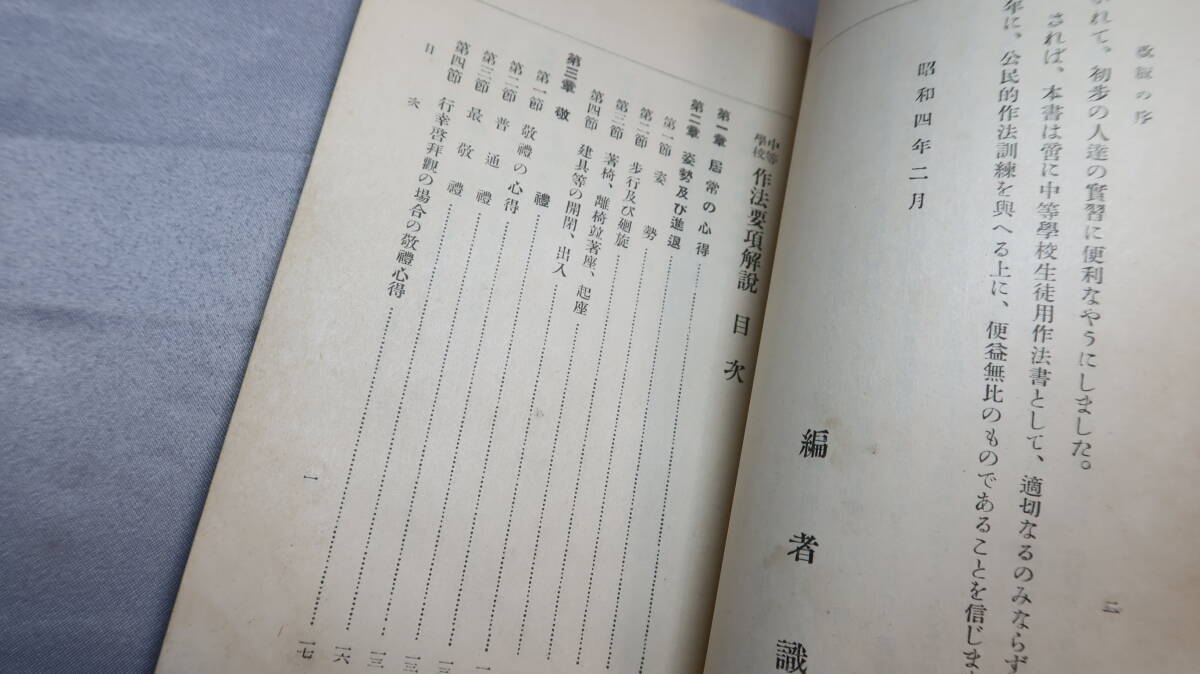 改編の序
二
かれて、初步の人達の實習に便利なやうにしました。
されば、本書は啻に中等學校生徒用作法書として、適切なるのみならず
年に、公民的作法訓練を與へる上に、便益無比のものであることを信じま
昭和四年二月
編者識
中等學校 作法要項解說 目次
第一章 居常の心得
第二章 姿勢及び進退
第一節 姿勢
第二節 步行及び廻旋
第三節 著椅、離椅竝著座、起座
第四節 建具等の開閉、出入
第三章 敬禮
第一節 敬禮の心得
第二節 普通禮
第三節 最敬禮
第四節 行幸啓拜觀の場合の敬禮心得
一三
一三
一六
一七
目次
一